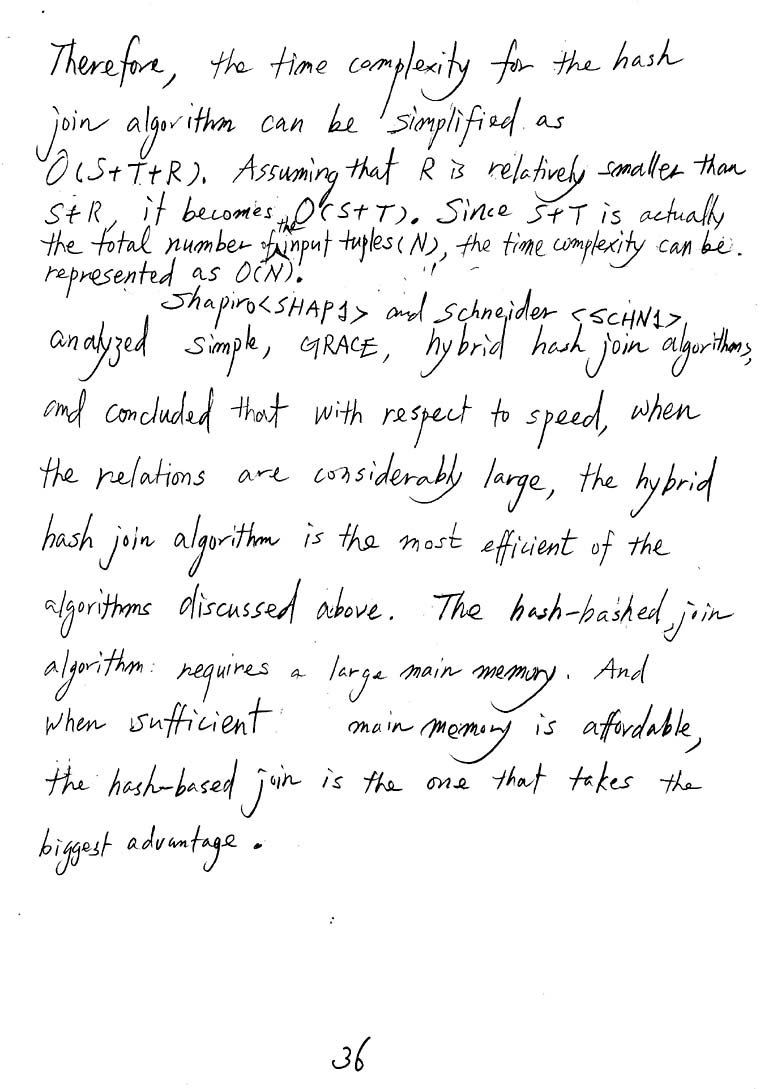 Therefore, the time complexity for the hash
join algorithm can be simplified as
O(S+T+R). Assuming that R is relatively smaller than
S+R, it becomes O(S+T). Since S+T is actually
the total number of the input tuples(N), the time complexity can be.
represented as O(N).
Shapiro<SHAP1> and Schneider <SCHN1>
analyzed simple, GRACE, hybrid hash join algorithms,
and concluded that with respect to speed, when
the relations are considerably large, the hybrid
hash join algorithm is the most efficient of the
algorithms discussed above. The hash-bashed join
algorithm requires a large main memory. And
when sufficient main memory is affordable,
the hash-based join is the one that takes the
biggest advantage.
36